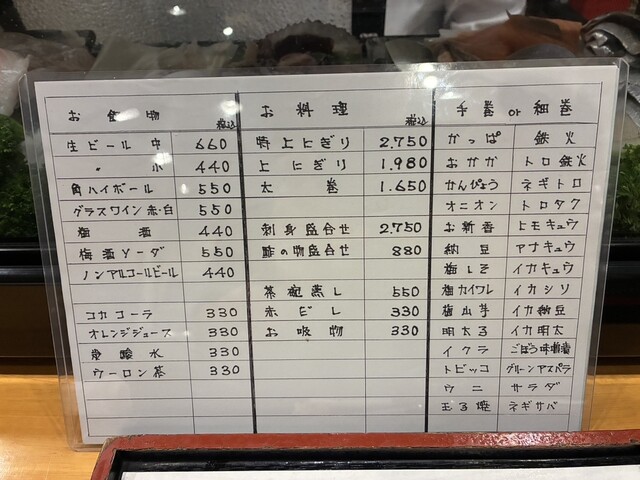 お食物 税込
生ビール 中 660
〃 小 440
角ハイボール 550
グラスワイン 赤・白 550
梅酒 440
梅酒ソーダ 550
ノンアルコールビール 440
コカコーラ 330
オレンジジュース 330
炭酸水 330
ウーロン茶 330
お料理 税込
特上にぎり 2,750
上にぎり 1.980
太巻 1.650
刺身盛合せ 2,750
酢の物盛合せ 880
茶碗蒸し 550
赤だし 330
お吸物 330
手巻 or 細巻
かっぱ 鉄火
おかか トロ鉄火
かんぴょう ネギトロ
オニオン トロタク
お新香 ヒモキュウ
納豆 アナキュウ
梅しそ イカキュウ
梅カイワレ イカシソ
梅山芋 イカ納豆
明太子 イカ明太
イクラ ごぼう味噌漬
トビッコ グリーンアスパラ
ウニ サラダ
玉子焼 ネギサバ